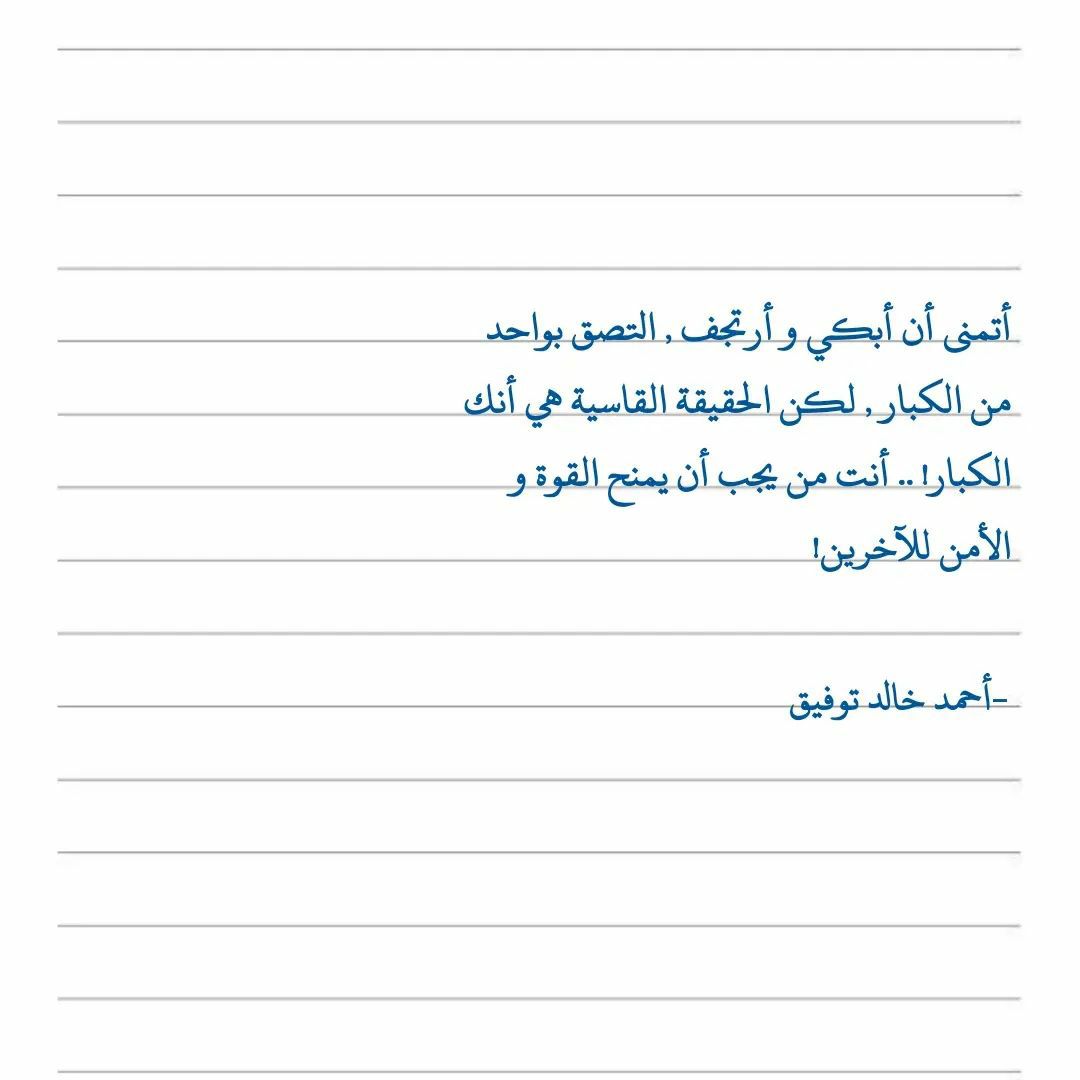 أتمنى أن أبكي و أرتجف , التصق بواحد
من الكبار , لكن الحقيقة القاسية هي أنك
الكبار! .. أنت من يجب أن يمنح القوة و
الأمن للآخرين!
-أحمد خالد توفيق